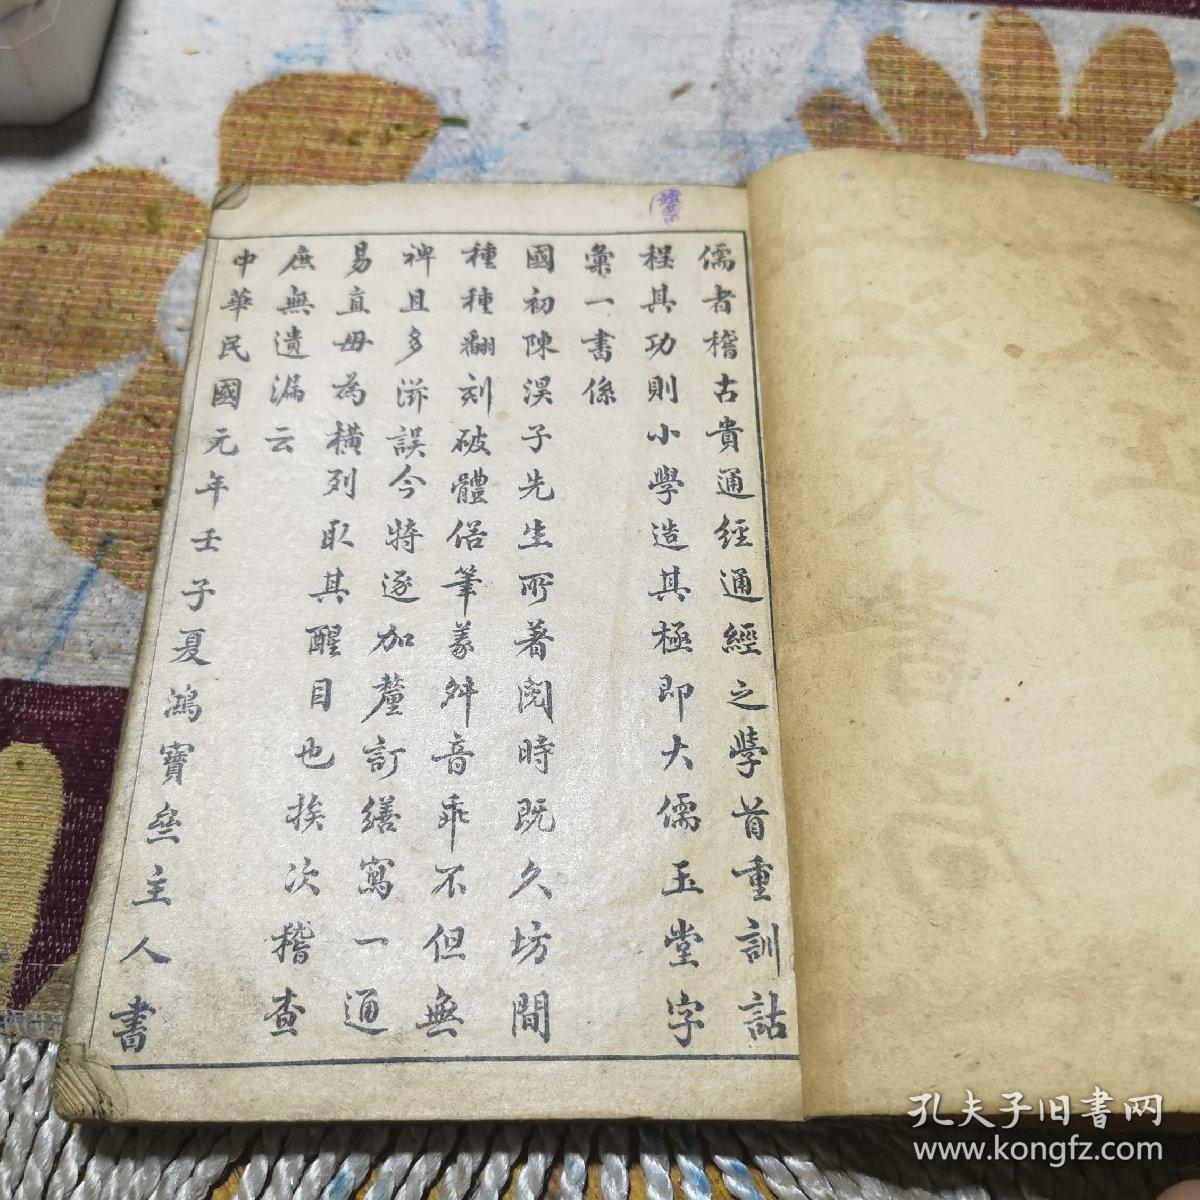 儒者稽古貴通經通經之學首重訓詁
程其功則小學造其極即大儒玉堂字
彙一書係
國初陳淏子先生所著閱時既久坊間
種種翻刻破體俗筆義舛音乖不但無
裨且多滋誤今特逐加釐訂繕寫一通
易直毋為橫列取其醒目也挨次稽查
庶無遺漏云
中華民國元年壬子夏鴻寶叁主人書
孔夫子旧書网
www.kongfz.com